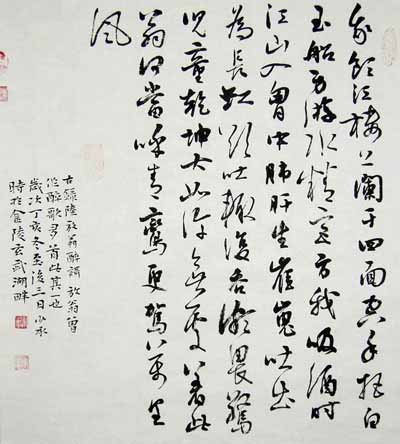 我飲江樓上闌干四面空手把白
玉船身游水精宮方我吸酒時
江山入胷中肺肝生崔嵬吐出
為長虹欲吐輒復吞頗畏驚
兒童乾坤大如许無處著此
翁何當呼青鸞更駕万里
風
右錄陸放翁醉謌放翁曾
作醉歌多首此其一也
歲次丁亥冬至後三日
時於金陵玄武湖畔